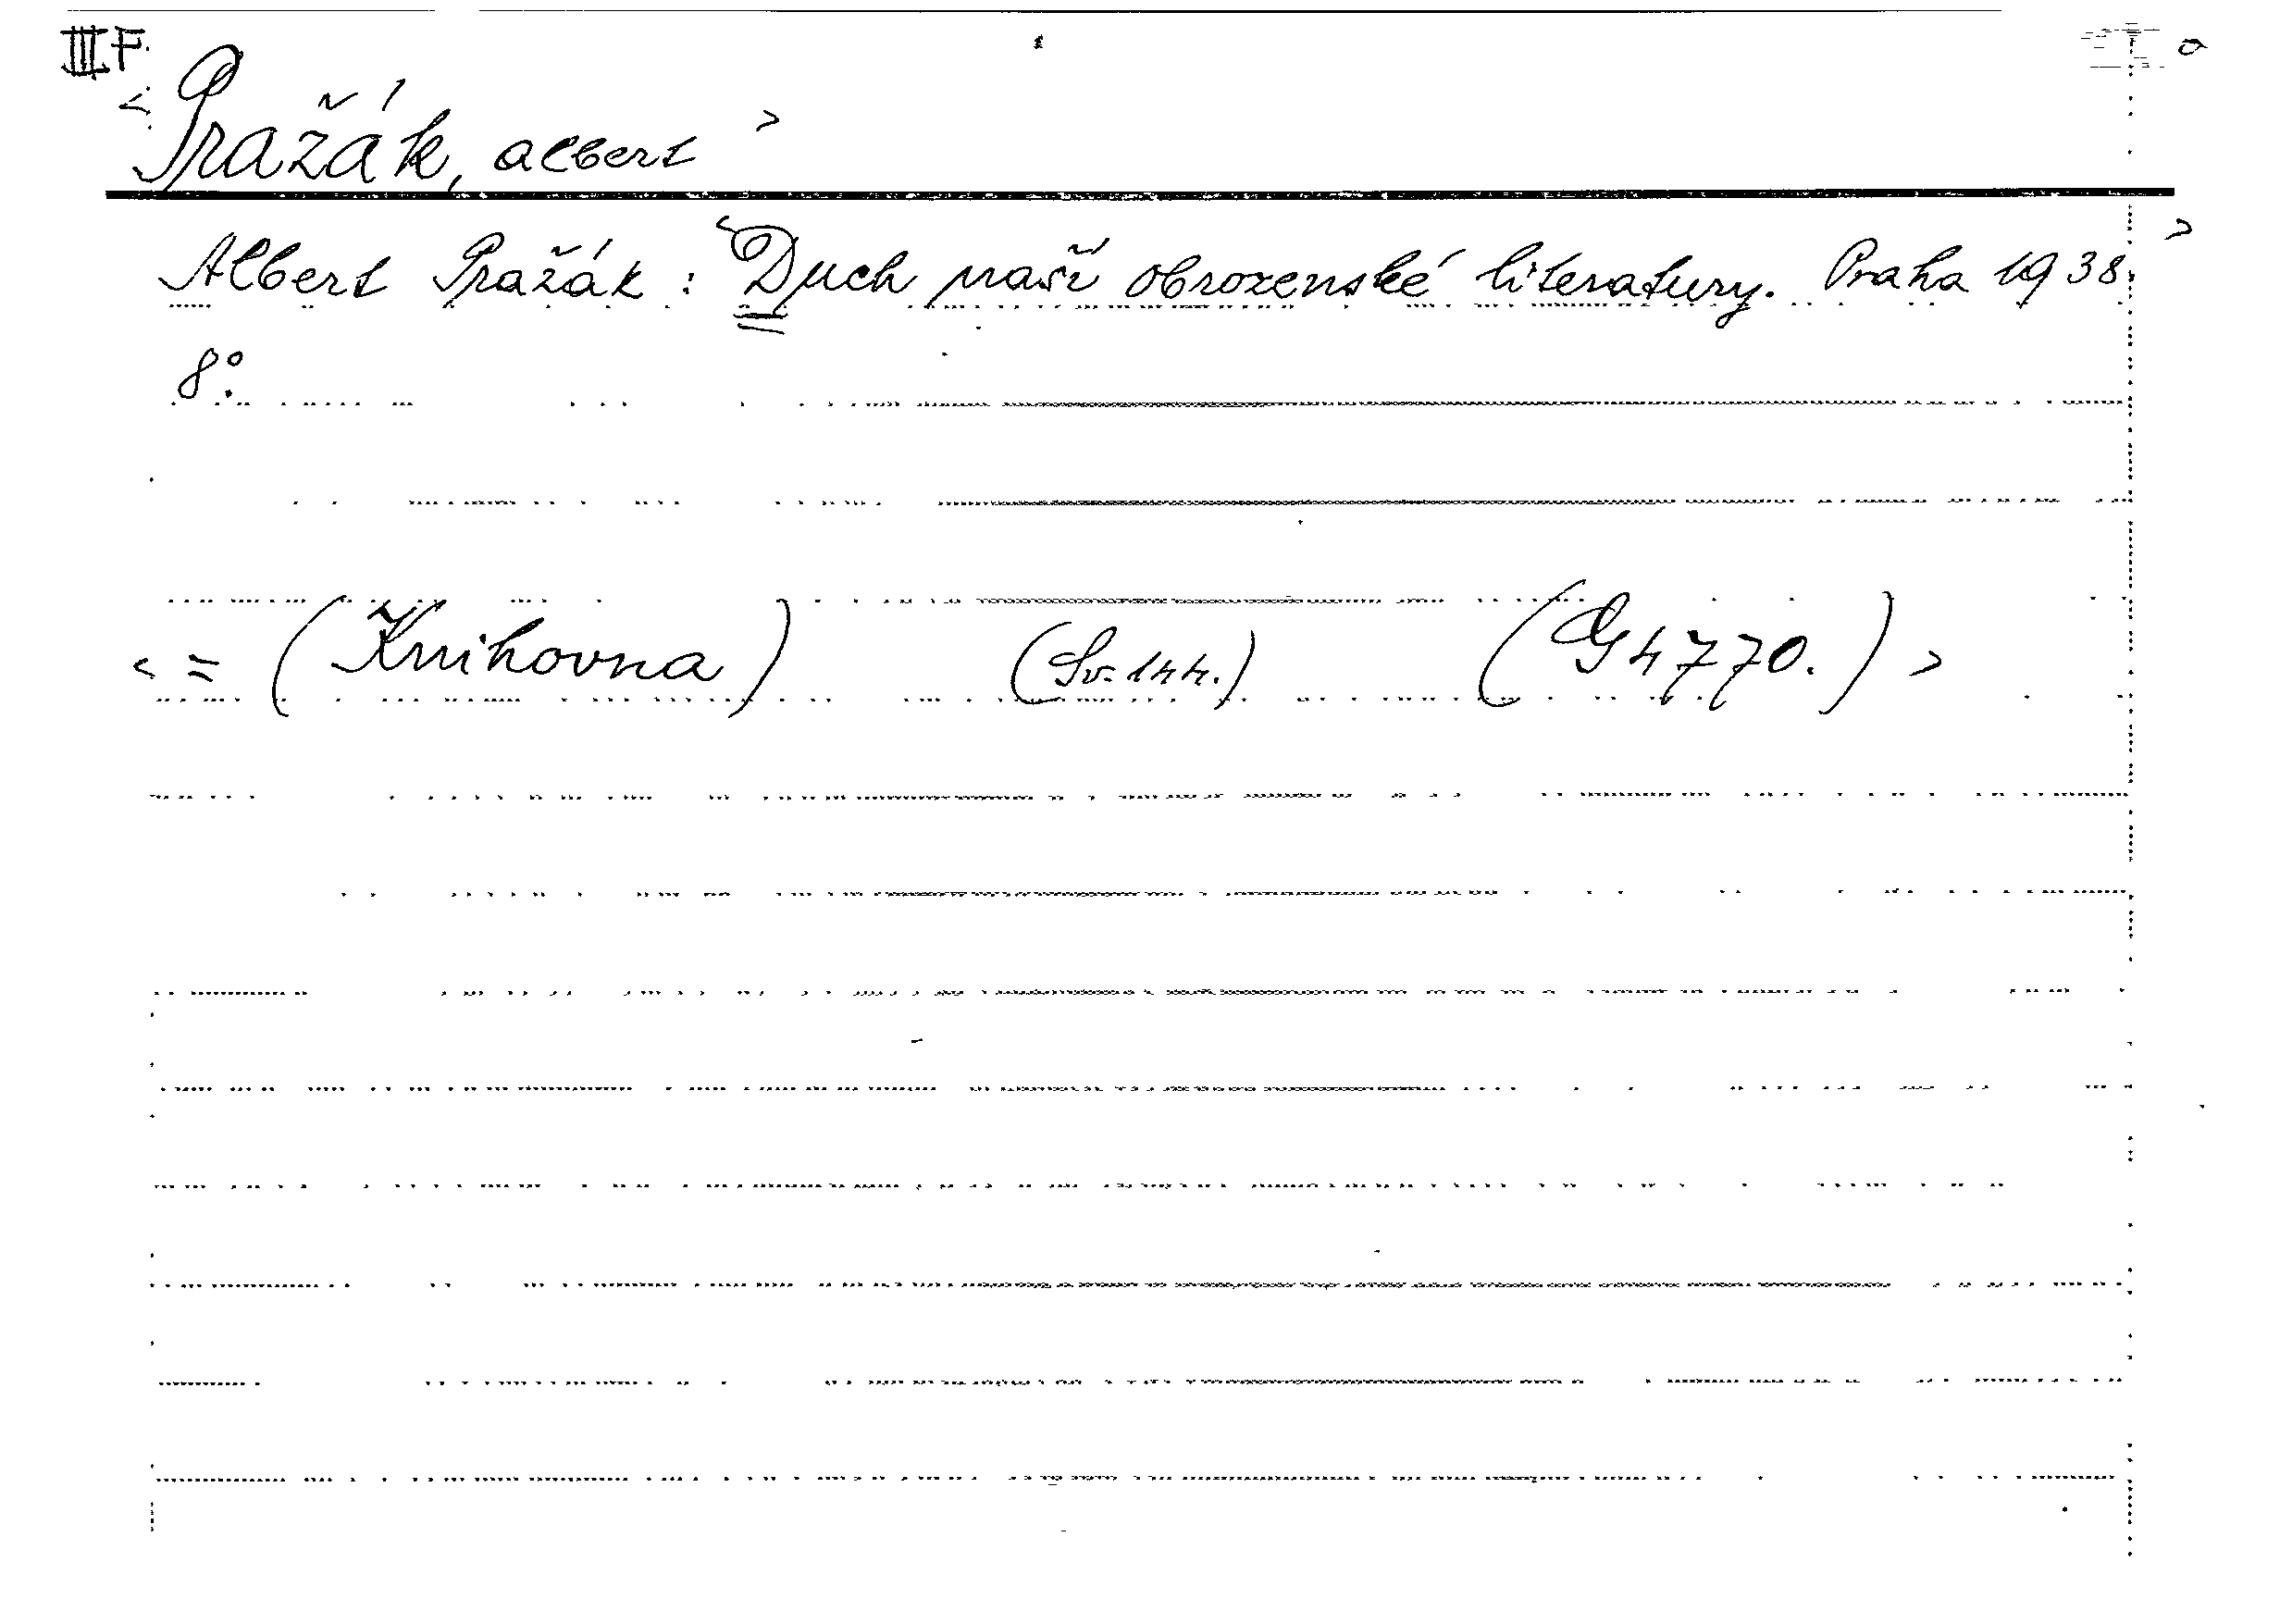 III F.
<Pražák, Albert>
Albert Pražák: <Duch naší obrozenské literatury. Praha 1938.>
8°.
<= (Knihovna) (Sv. 144.) (G 4770.)>